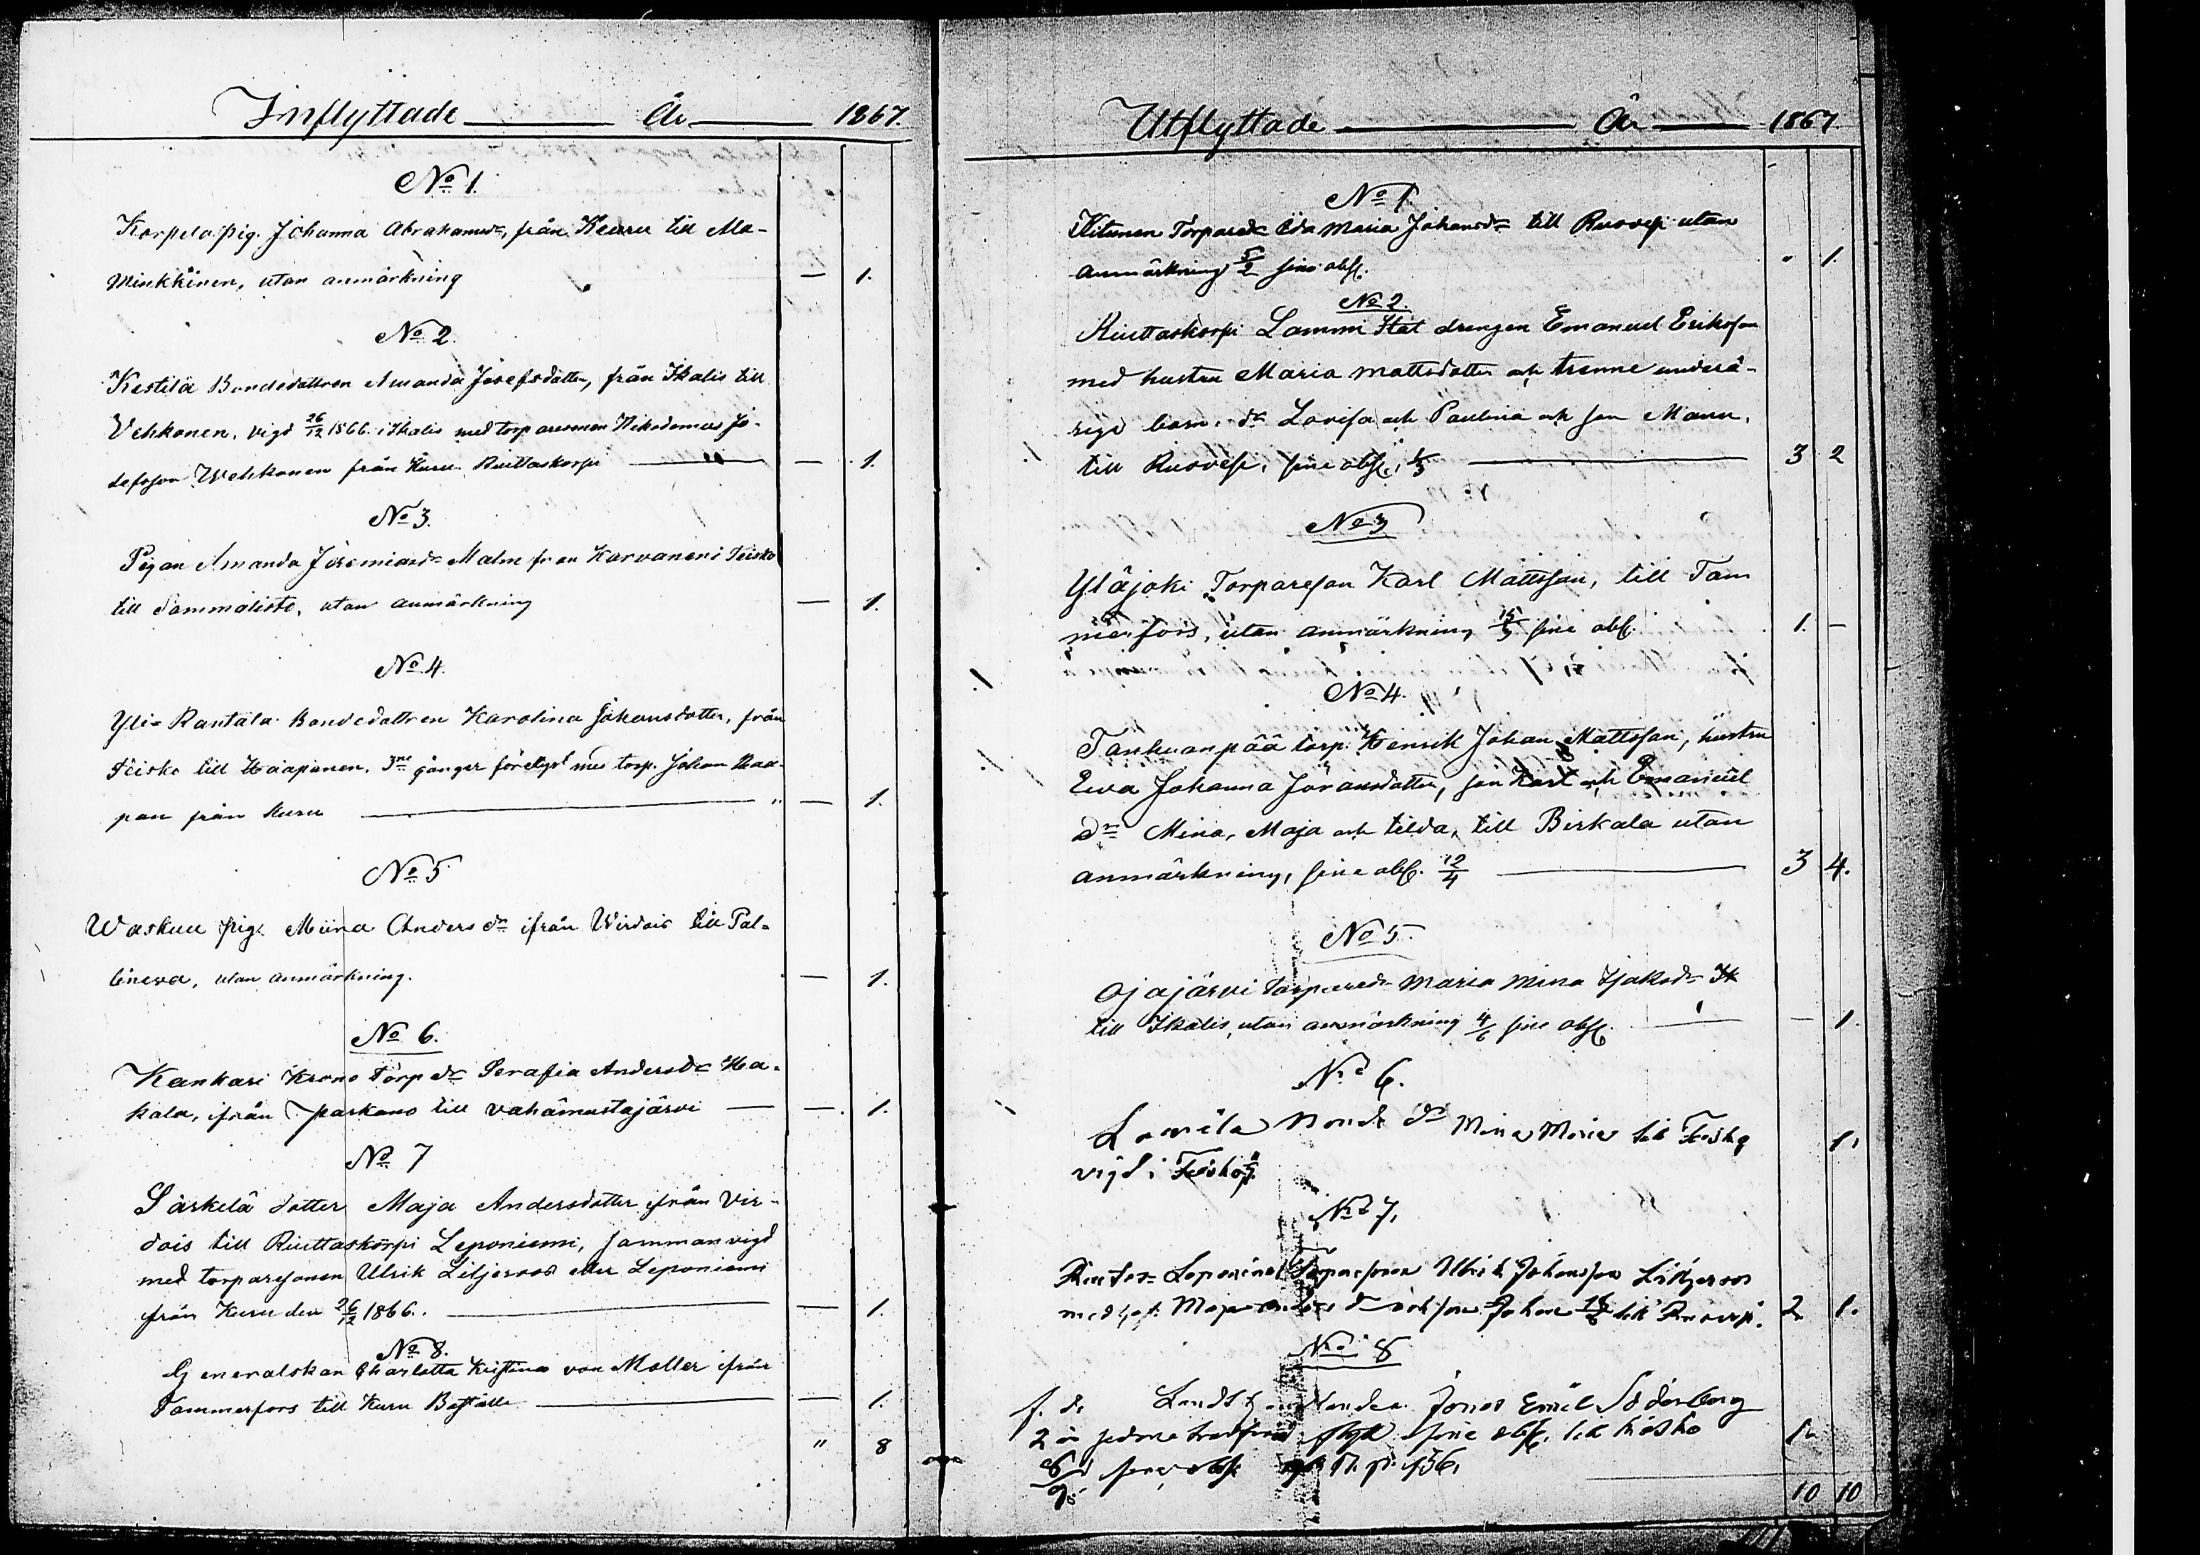 Inflyttade År 1867.
No 1.
Korpela pig. Johanna Abrahamsdr, från Keuru till Ma-
Minkkinen, utan anmärkning — 1.
No 2.
Kestilä Bondedottren Amanda Josefsdotter, från Ikalis till
Vehkonen, vigd 26/12 1866 i Ikalis med torparesonen Nikodemus Jo-
sefsson Wehkonen från Kuru Riuttaskorpi — 1.
No 3.
Pigan Amanda Jeremiasdr Malm från Karvanen i Teisko
till Sammalisto, utan anmärkning — 1.
No 4.
Yli-Rantala Bondedottren Karolina Johansdotter, från
Teisko till Haapanen, 3ne gånger förelyst med torp. Johan Haa-
pan från Kuru — 1.
No 5
Waskuu pig. Miina Andersdr ifrån Wirdois till Pal-
lineva, utan anmärkning. — 1.
No 6.
Kankari Krono Torpdr Serafia Andersdr Ha-
kala, ifrån Parkano till Vahämustajärvi — 1.
No 7
Särkelä dotter Maja Andersdotter ifrån Vir-
dois till Riuttaskorpi Leponiemi, sammanvigd
med torparesonen Ulrik Liljeroos eller Leponiemi
från Kuru den 26/12 1866. — 1.
No 8.
Generalskan Charlotta Kristina von Moller ifrån
Tammerfors till Kuru Boställe — 1.
" 8
Utflyttade År 1867
No 1
Kitunen Torparedr Ida Maria Johansdr till Ruovesi utan
anmärkning 5/2 sine obs. " 1.
No 2.
Riuttaskorpi Lammi Stat drengen Emanuel Eriksson
med hustru Maria Mattsdotter och trenne underå-
rige barn, dr Lovisa och Paulina och son Manu,
till Ruovesi, sine obs. 1/3 3 2
No 3
Yläjoki Torpareson Karl Mattsson, till Tam
merfors, utan anmärkning 15/3 sine obs. 1. —
No 4.
Tankuanpää torp. Henrik Johan Mattsson, hustru
Eva Johanna Göransdotter, son Karl och Emanuel
dr Mina, Maja och Tilda, till Birkala utan
anmärkning, sine obs. 12/4 3 4.
No 5.
Ojajärvi torparedr Maria Mina Isaksdr Ik
till Ikalis, utan anmärkning 4/6 sine obs. — 1.
No 6.
dr Mina Maria till Teisko 1.
vigd i Teisko
No 7,
Leponiemi Torparesonen Ulrik Johansson Liljeroos
med h. Maja Andersdr och son Johan till Ruovesi. 2 1.
No 8
f. d. Jonas Emil Söderberg
2 år sine obs. till Teisko 1.
p. 136.
10 10